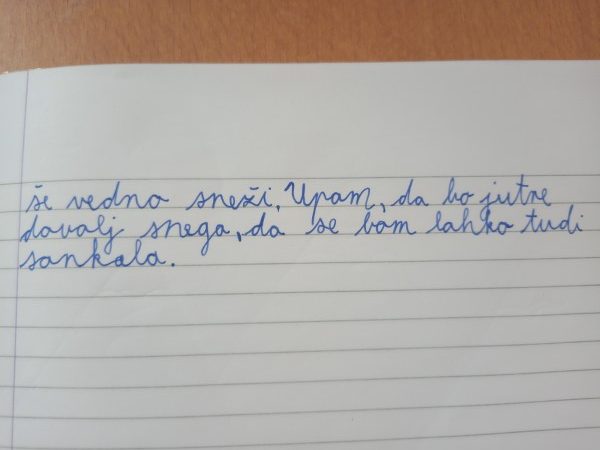 še vedno sneži. Upam, da bo jutre
dovolj snega, da se bom lahko tudi
sankala.